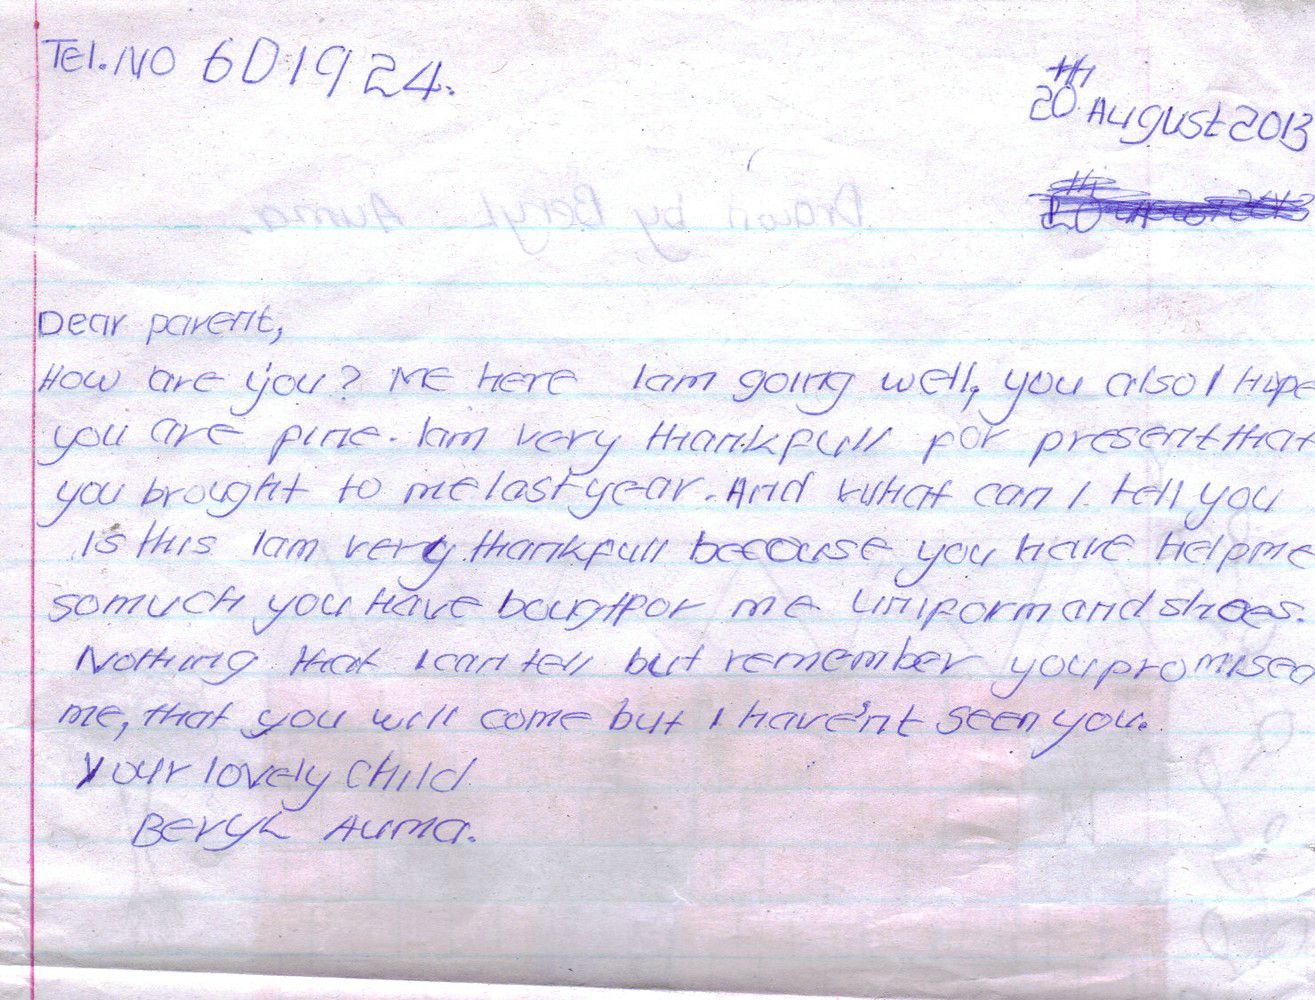 Tel. NO 6D1924.
20th August 2013
Drawn by Beryl Auma.
Dear parent,
How are you? Me here Iam going well, you also I Hope
you are pine. Iam very thankfull for present that
you brought to me last year. And what can I tell you
Is this Iam very thankfull because you have help me
somuch you have bought for me uniform and shoes.
Nothing that I can tell but remember you promised
me, that you will come but I have'nt seen you.
Your lovely child
Beryl Auma.